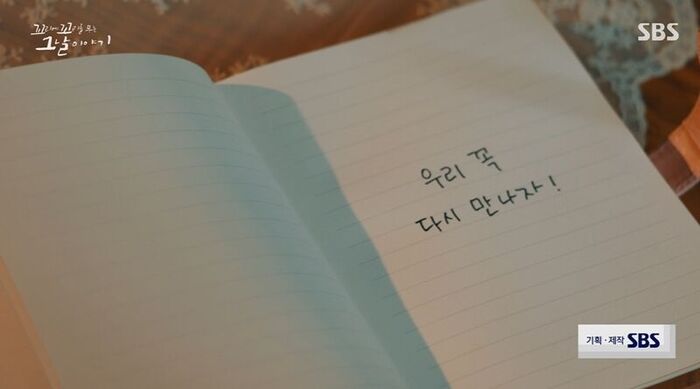 꼬리에 꼬리를 무는
그날 이야기
SBS
우리 꼭
다시 만나자!
기획·제작 SBS